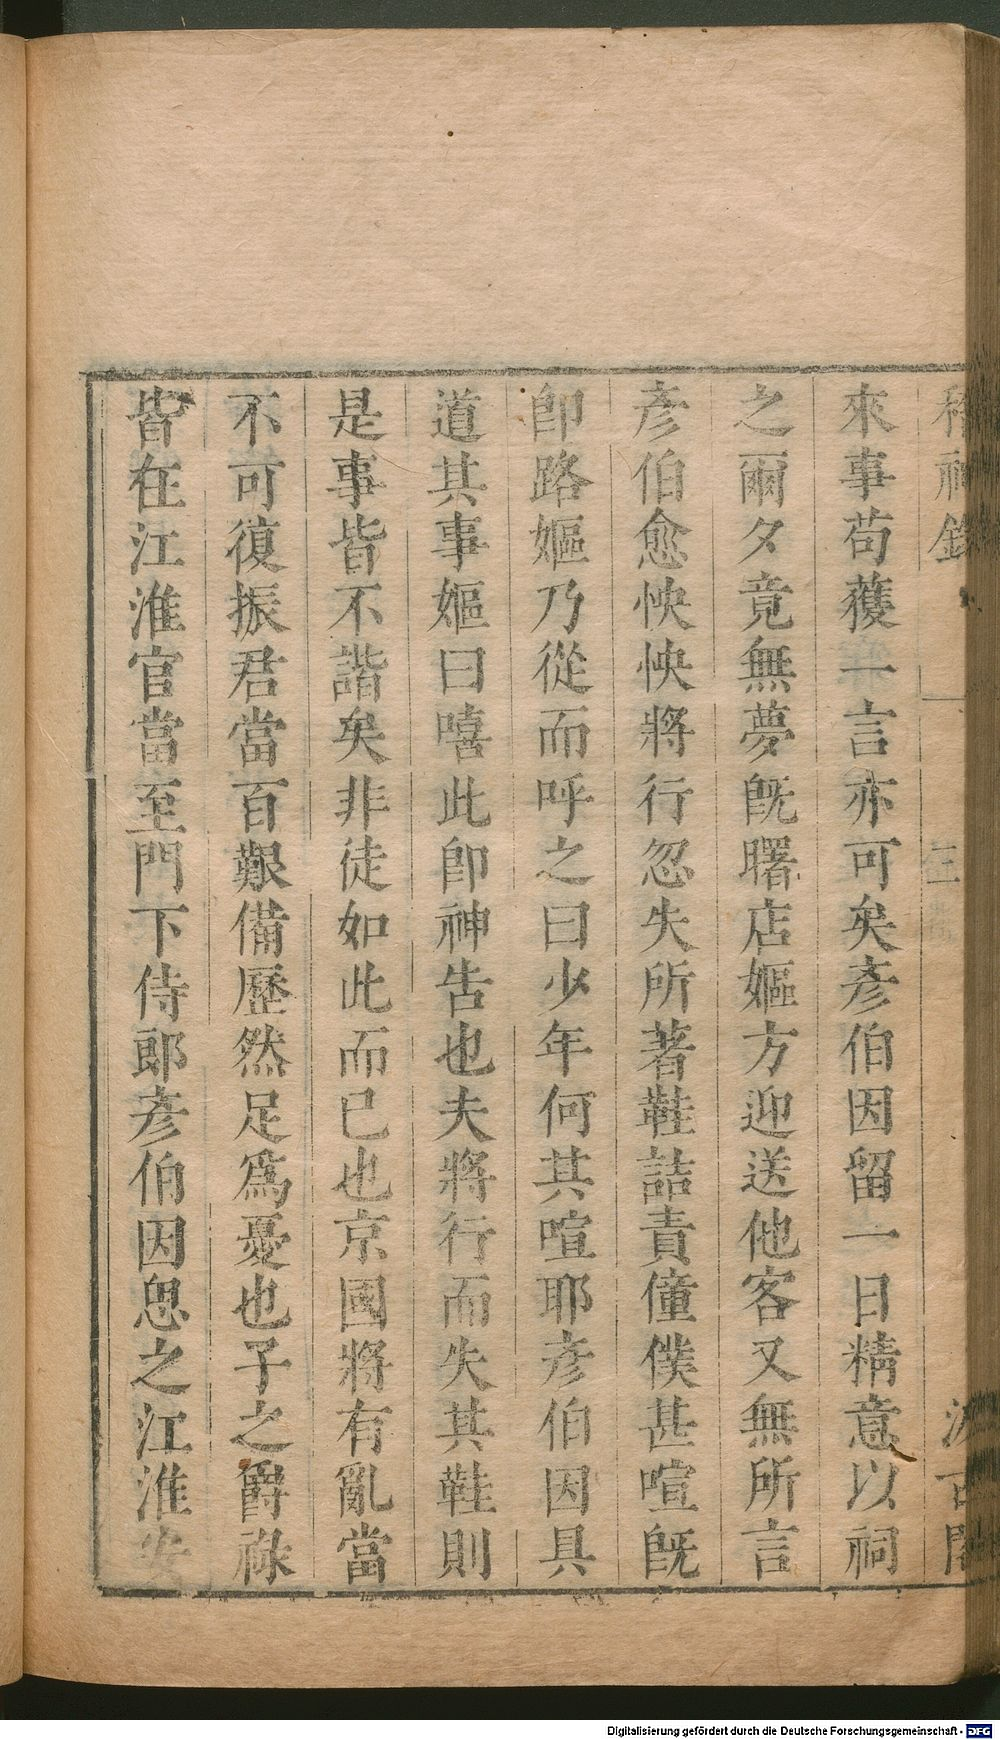 稽神錄
一
三
汲古閣
來事苟獲一言亦可矣彥伯因留一日精意以祠
之爾夕竟無夢旣曙店嫗方迎送他客又無所言
彥伯愈怏怏將行忽失所著鞋詰責僮僕甚喧旣
卽路嫗乃從而呼之曰少年何其喧耶彥伯因具
道其事嫗曰嘻此卽神告也夫將行而失其鞋則
是事皆不諧矣非徒如此而已也京國將有亂當
不可復振君當百艱備歷然足爲憂也子之爵祿
皆在江淮官當至門下侍郎彥伯因思之江淮安
Digitalisierung gefördert durch die Deutsche Forschungsgemeinschaft - DFG